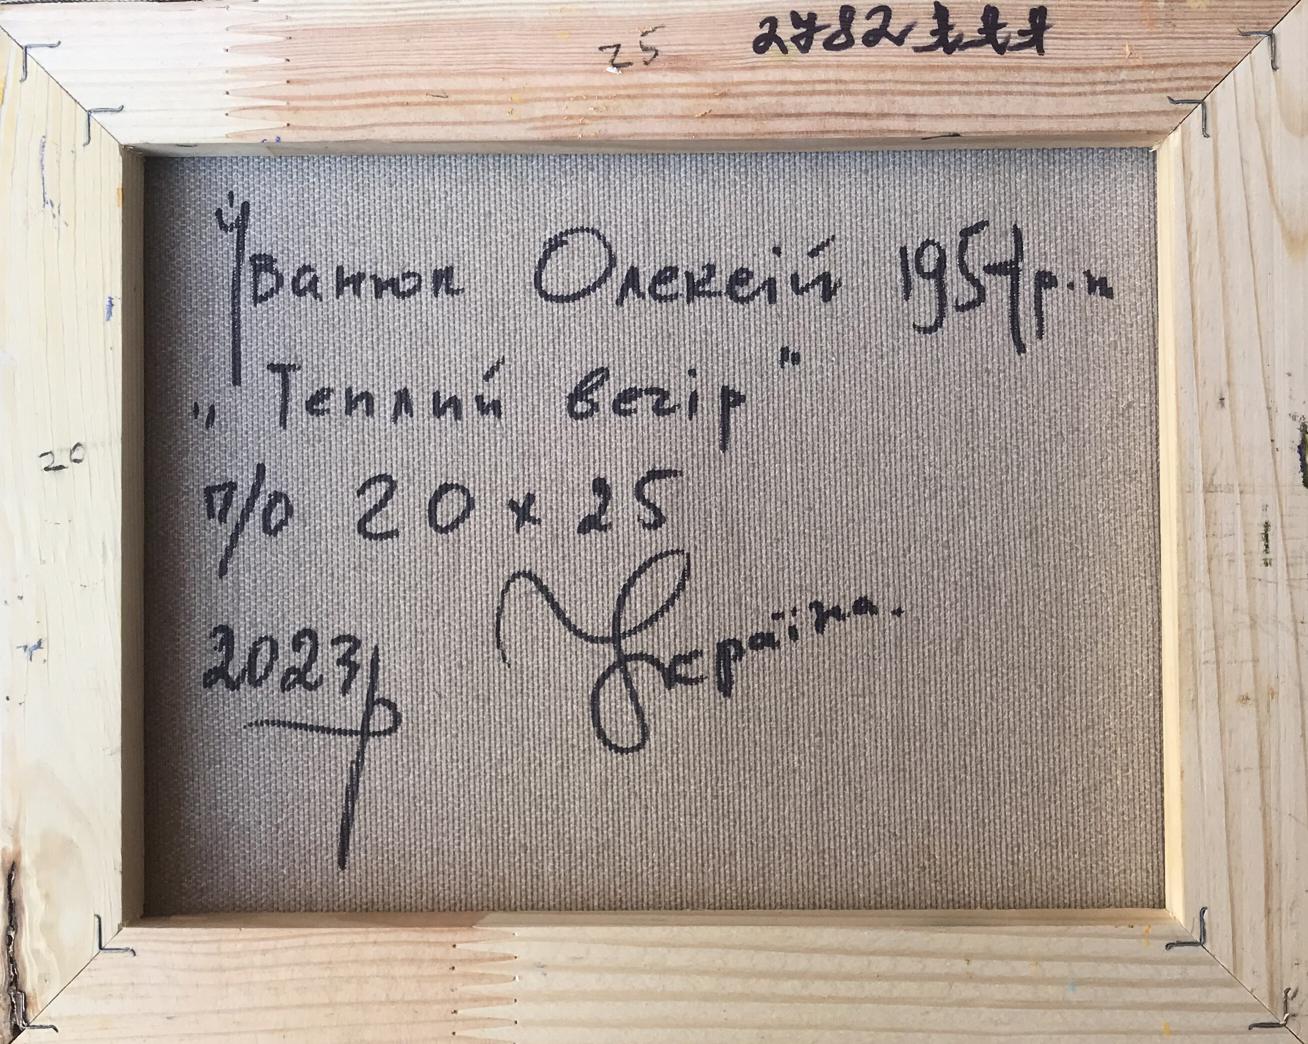 25 2782 ŧŧŧ
Іванюк Олексій 1954 р.н
„Теплий вечір"
п/о 20 х 25
20
2023р
Україна.